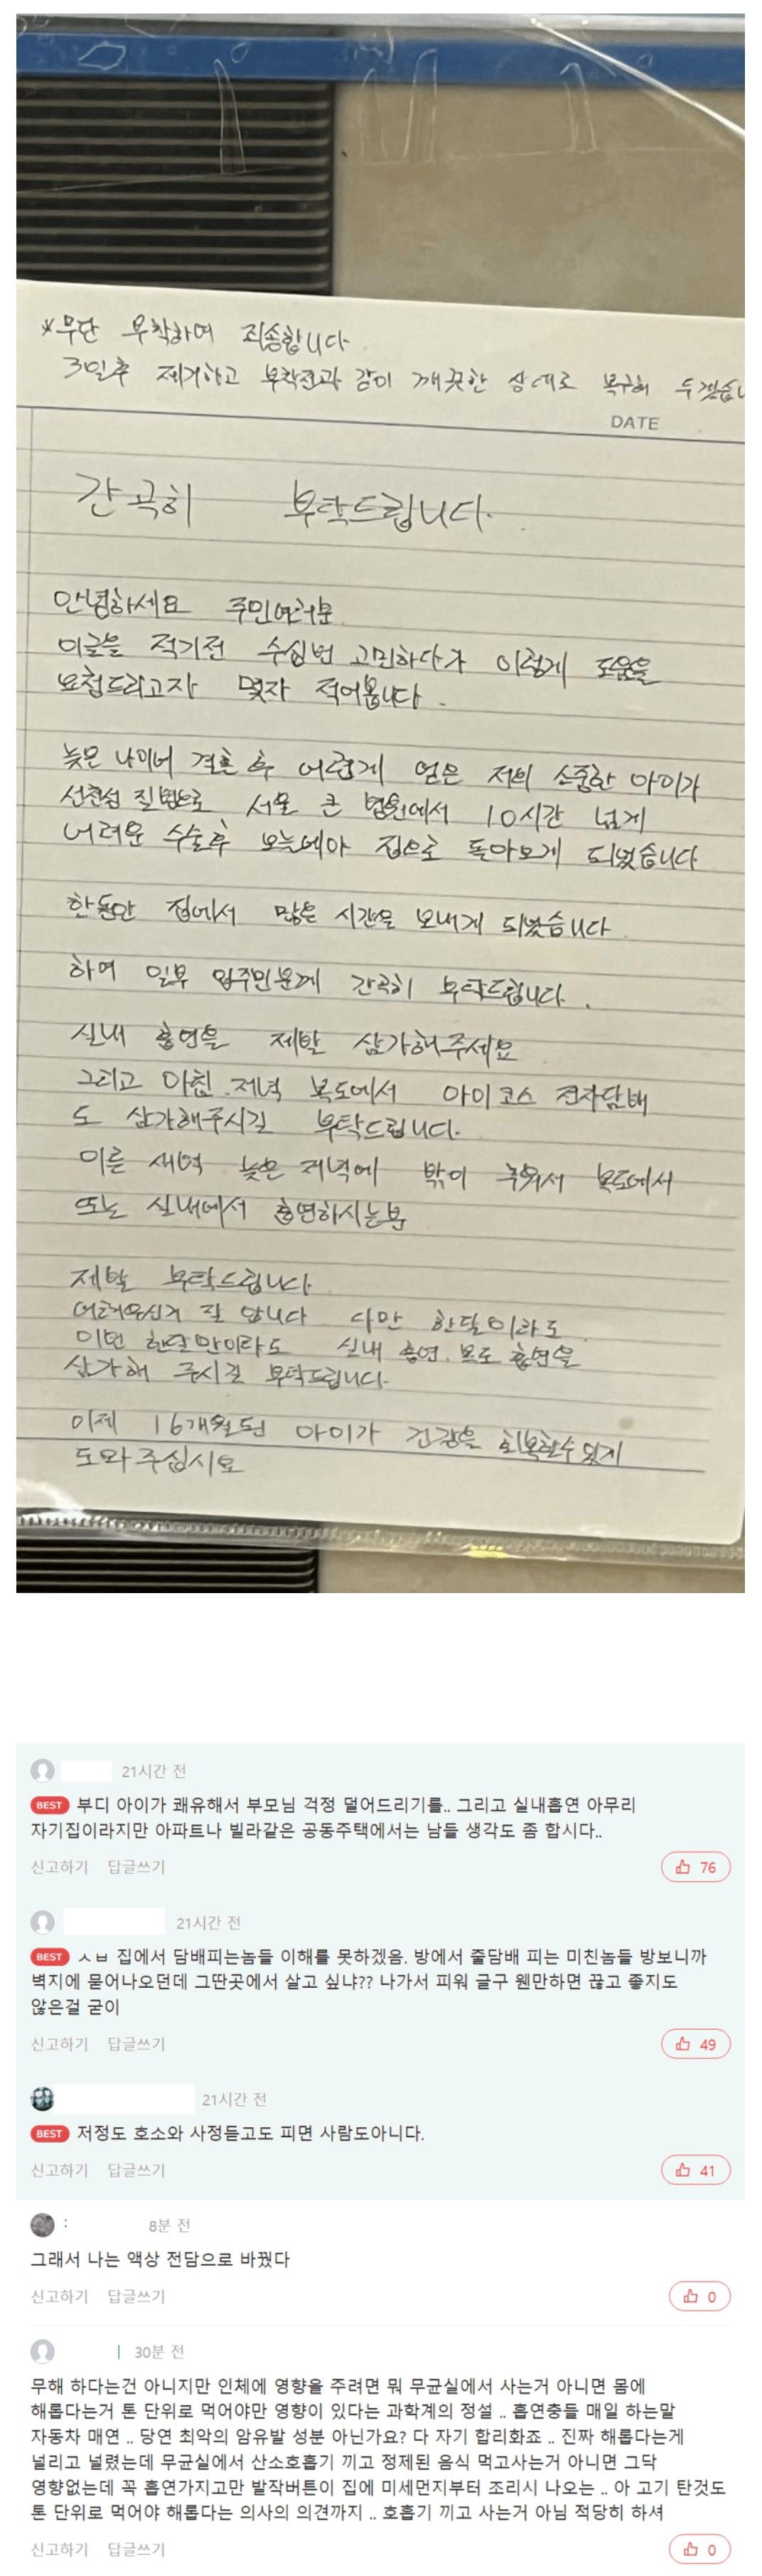 *무단 부착하여 죄송합니다
3일후 제거하고 부착전과 같이 깨끗한 상태로 복구해 두겠습니
DATE
간곡히 부탁드립니다.
안녕하세요 주민여러분
이글을 적기전 수십번 고민하다가 이렇게 도움을
요청드리고자 몇자 적어봅니다.
늦은 나이에 결혼 후 어렵게 얻은 저희 소중한 아이가
선천성 질병으로 서울 큰 병원에서 10시간 넘게
어려운 수술후 오늘에야 집으로 돌아오게 되었습니다
한동안 집에서 많은 시간을 보내게 되었습니다
하여 일부 입주민분께 간곡히 부탁드립니다.
실내 흡연을 제발 삼가해주세요
그리고 아침.저녁 복도에서 아이코스 전자담배
도 삼가해주시길 부탁드립니다.
이른 새벽 늦은 저녁에 밖이 추워서 복도에서
또는 실내에서 흡연하시는분
제발 부탁드립니다
어려우신거 잘 압니다 다만 한달이라도
이번 한달만이라도 실내 흡연.복도 흡연을
삼가해 주시길 부탁드립니다.
이제 16개월된 아이가 건강을 회복할수있게
도와주십시요
21시간 전
BEST 부디 아이가 쾌유해서 부모님 걱정 덜어드리기를.. 그리고 실내흡연 아무리
자기집이라지만 아파트나 빌라같은 공동주택에서는 남들 생각도 좀 합시다..
신고하기 답글쓰기 76
21시간 전
BEST ㅅㅂ 집에서 담배피는놈들 이해를 못하겠음. 방에서 줄담배 피는 미친놈들 방보니까
벽지에 묻어나오던데 그딴곳에서 살고 싶냐?? 나가서 피워 글구 웬만하면 끊고 좋지도
않은걸 굳이
신고하기 답글쓰기 49
21시간 전
BEST 저정도 호소와 사정듣고도 피면 사람도아니다.
신고하기 답글쓰기 41
: 8분 전
그래서 나는 액상 전담으로 바꿨다
신고하기 답글쓰기 0
30분 전
무해 하다는건 아니지만 인체에 영향을 주려면 뭐 무균실에서 사는거 아니면 몸에
해롭다는거 톤 단위로 먹어야만 영향이 있다는 과학계의 정설 .. 흡연충들 매일 하는말
자동차 매연 .. 당연 최악의 암유발 성분 아닌가요? 다 자기 합리화죠 .. 진짜 해롭다는게
널리고 널렸는데 무균실에서 산소호흡기 끼고 정제된 음식 먹고사는거 아니면 그닥
영향없는데 꼭 흡연가지고만 발작버튼이 집에 미세먼지부터 조리시 나오는 .. 아 고기 탄것도
톤 단위로 먹어야 해롭다는 의사의 의견까지 .. 호흡기 끼고 사는거 아님 적당히 하셔
신고하기 답글쓰기 0